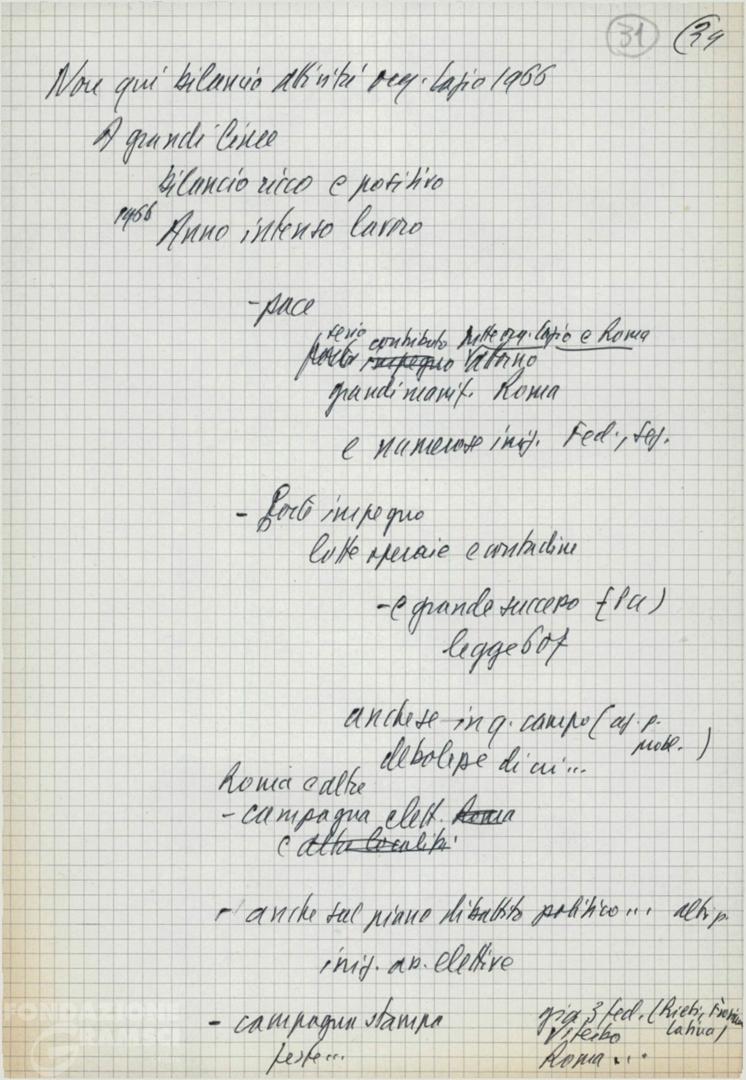 31 (34
Non qui bilancio attività reg. Lazio 1966
A grandi linee
bilancio ricco e positivo
1966 Anno intenso lavoro
- pace
serio contributo tutte org. Lazio e Roma
forte impegno
grandi manif. Roma
e numerose iniz. Fed., Sez.
- Forte impegno
lotte operaie e contadine
- e grande successo (PCI)
legge 607
anche se in q. campo (
debolezze di cui...
Roma e altre
- campagna elett. Roma
e altre località
- anche sul piano dibattito politico... altri p.
iniz. ass. elettive
- campagna stampa
feste...
già 3 fed. (Rieti, Frosinone
Viterbo Latina)
Roma...
FONDAZIONE
GRAMSCI